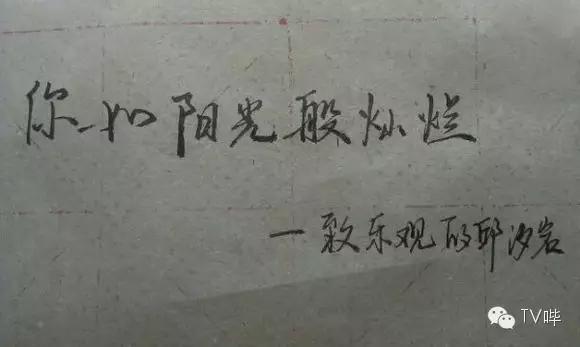 你如阳光般灿烂
一致乐观的邱汐岩
TV哗